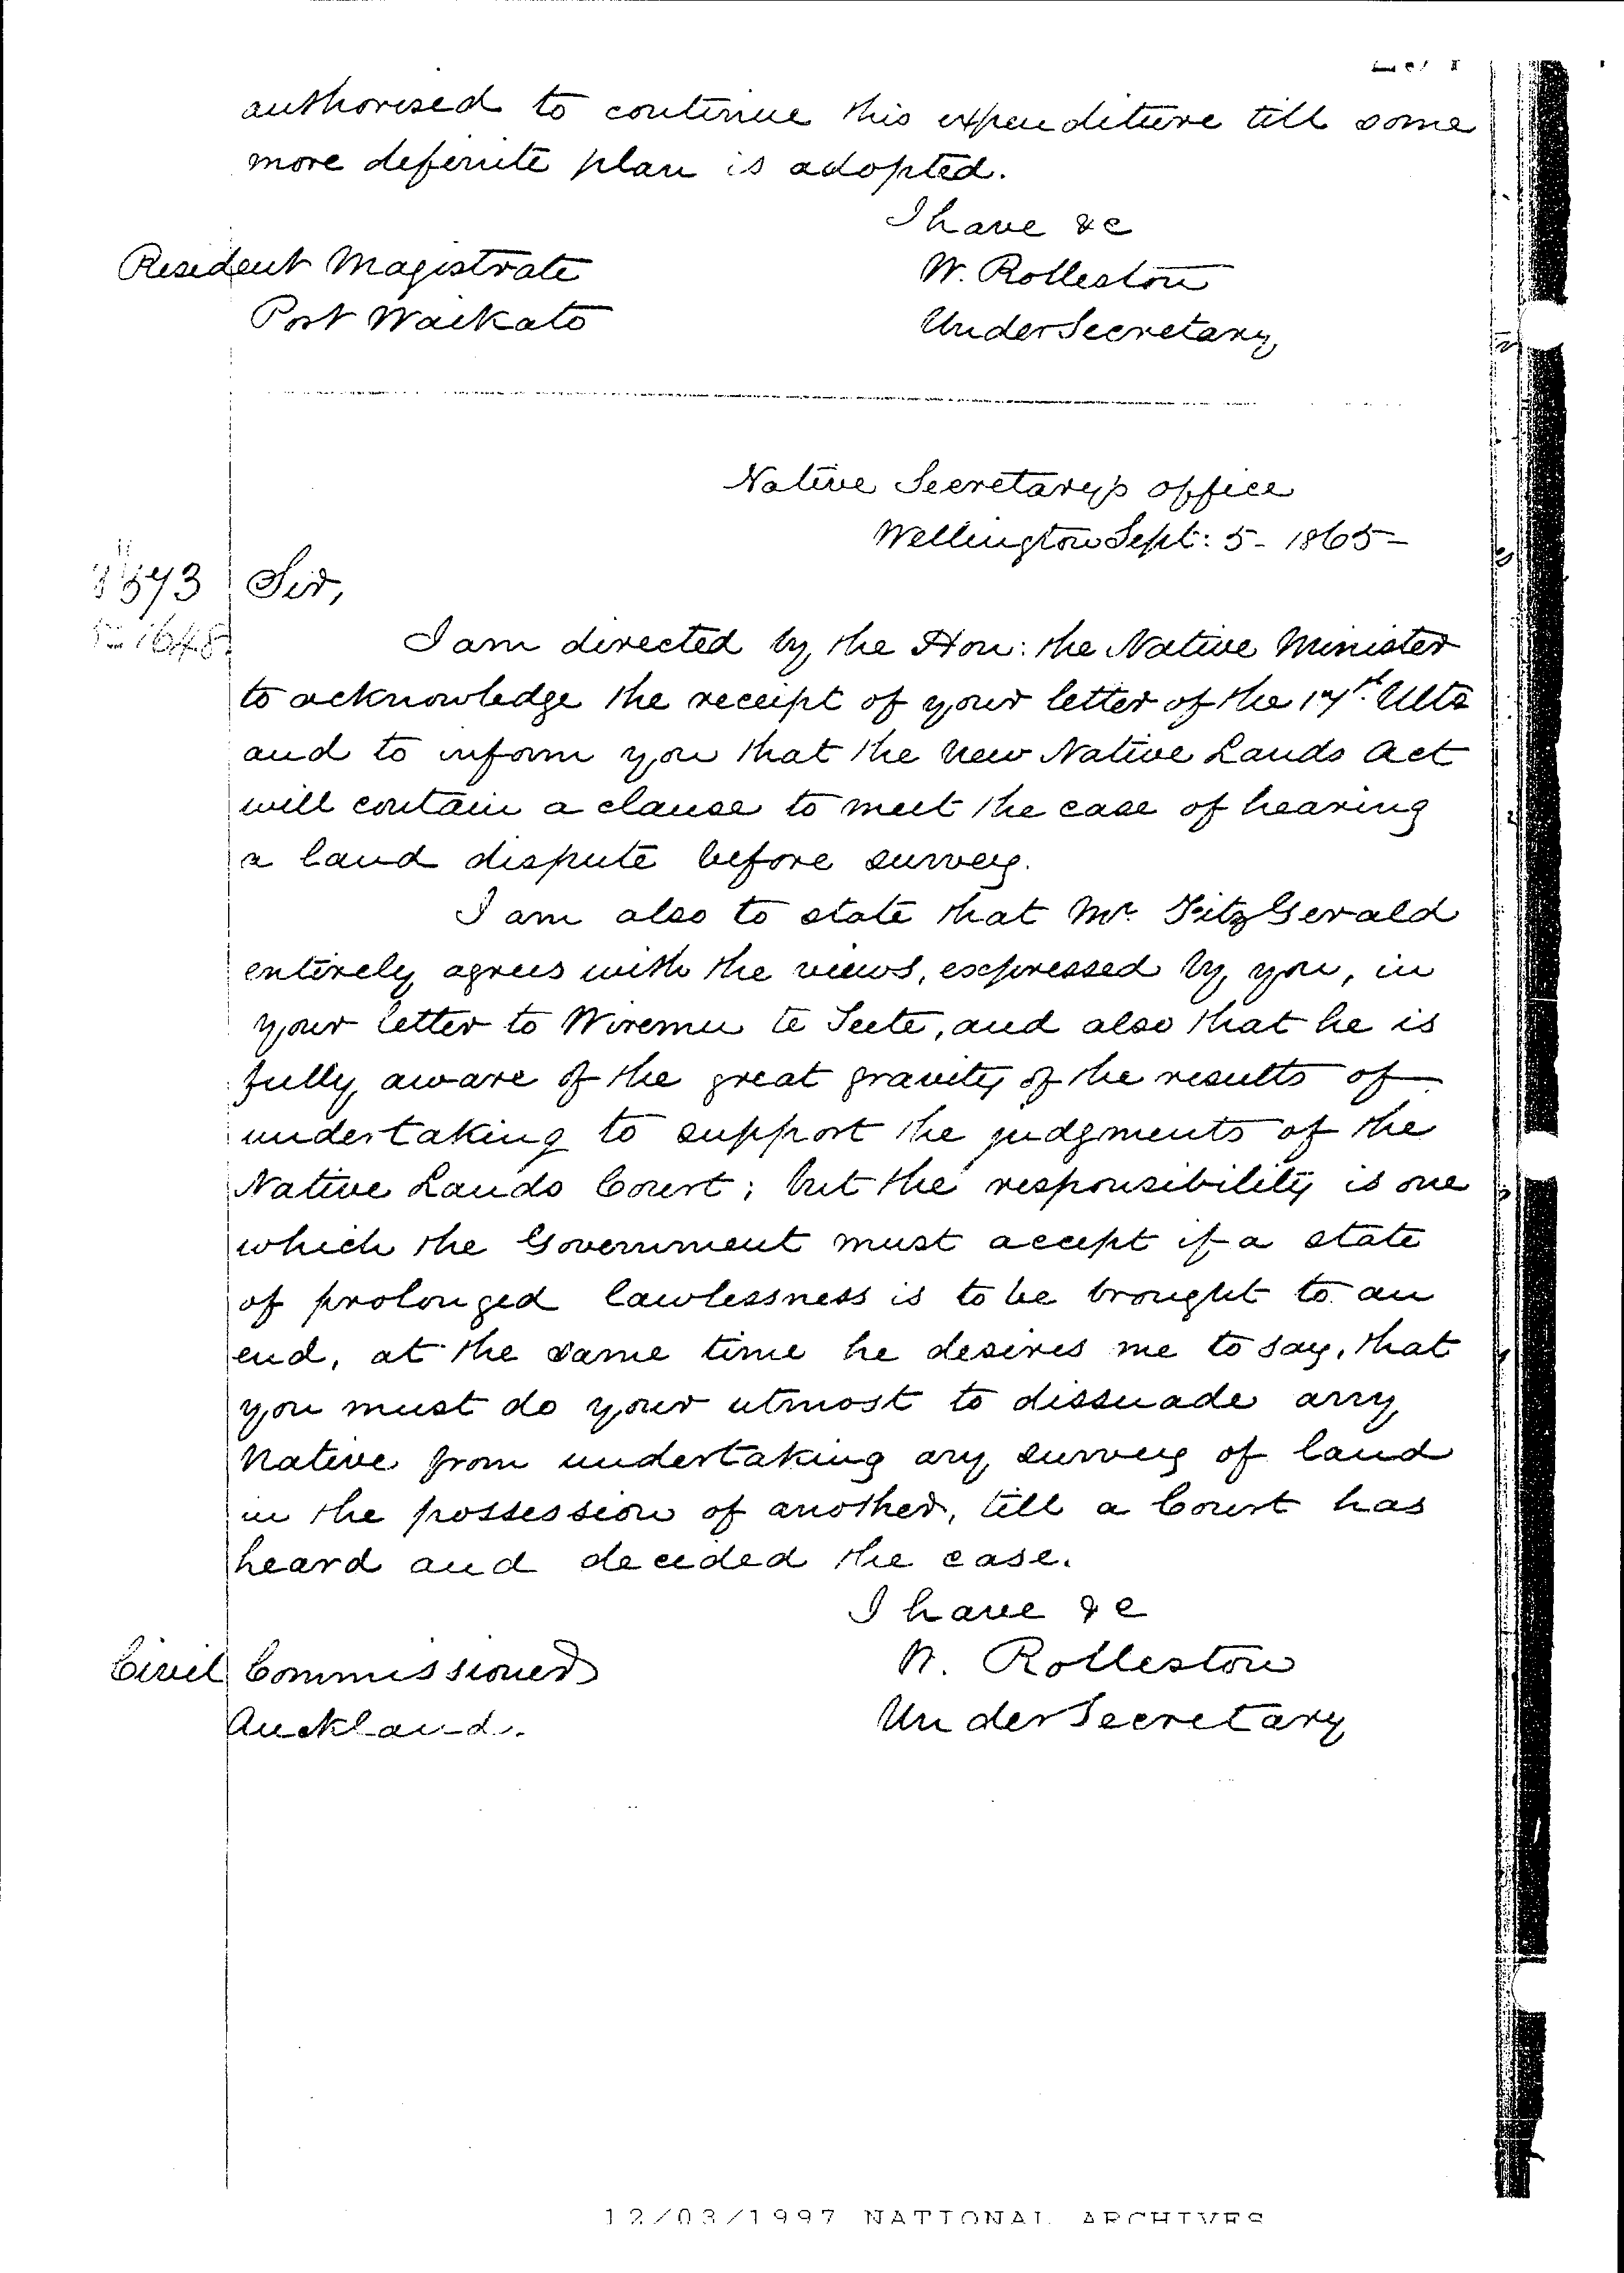 authorised to continue this expenditure till some
more definite plan is adopted.
I have &c
Resident Magistrate
W. Rolleston
Port Waikato
Under Secretary
Native Secretary's office
Wellington Sept: 5 - 1865 -
Sir,
I am directed by the Hon: the Native Minister
to acknowledge the receipt of your letter of the 17th. Ulto
and to inform you that the New Native Lands Act
will contain a clause to meet the case of hearing
a land dispute before survey.
I am also to state that Mr. FitzGerald
entirely agrees with the views, expressed by you, in
your letter to Wiremu te , and also that he is
fully aware of the great gravity of the results of
undertaking to support the judgments of the
Native Lands Court; but the responsibility is one
which the Government must accept if a state
of prolonged lawlessness is to be brought to an
end, at the same time he desires me to say, that
you must do your utmost to dissuade any
Native from undertaking any survey of land
in the possession of another, till a Court has
heard and decided the case.
I have &c
Civil Commissioner
W. Rolleston
Auckland.
Under Secretary
12/03/1997 NATIONAL ARCHIVES